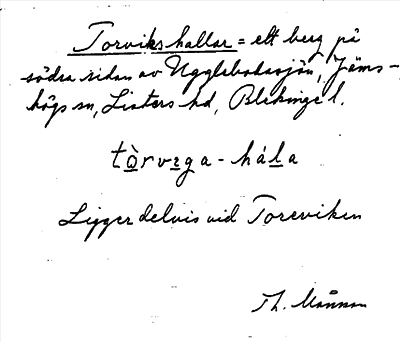 Torvikshallar = ett berg på
södra sidan av Ugglebodasjön, Jäms-
högs sn, Listers hd, Blekinge l.
tòrvęga - hála
Ligger delvis vid Toreviken
Th.